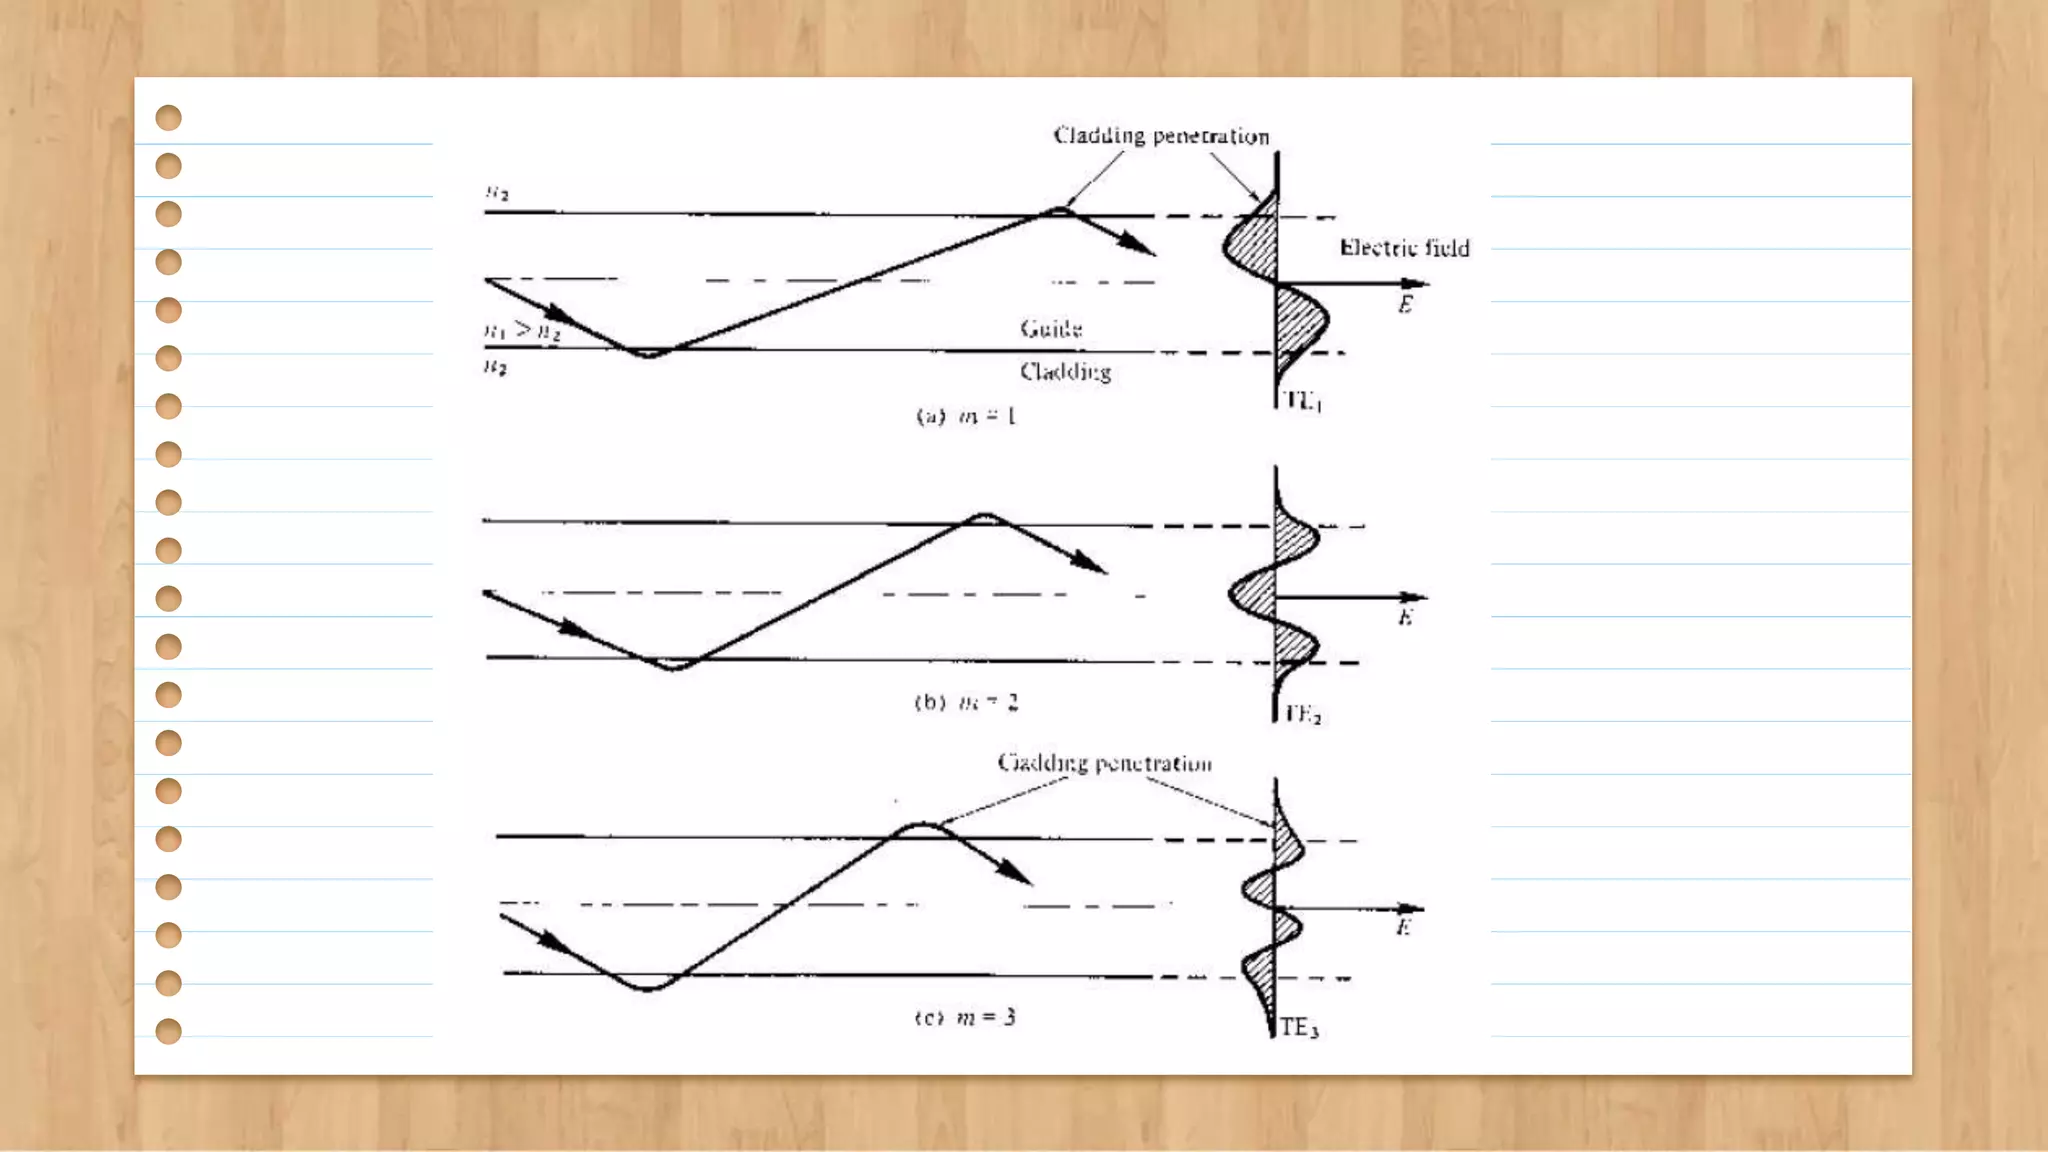 Cladding penetration
n₂
Electric field
E
n₁ > n₂
Guide
n₂
Cladding
TE₁
(a) m = 1
E
(b) m = 2
TE₂
Cladding penetration
E
(c) m = 3
TE₃